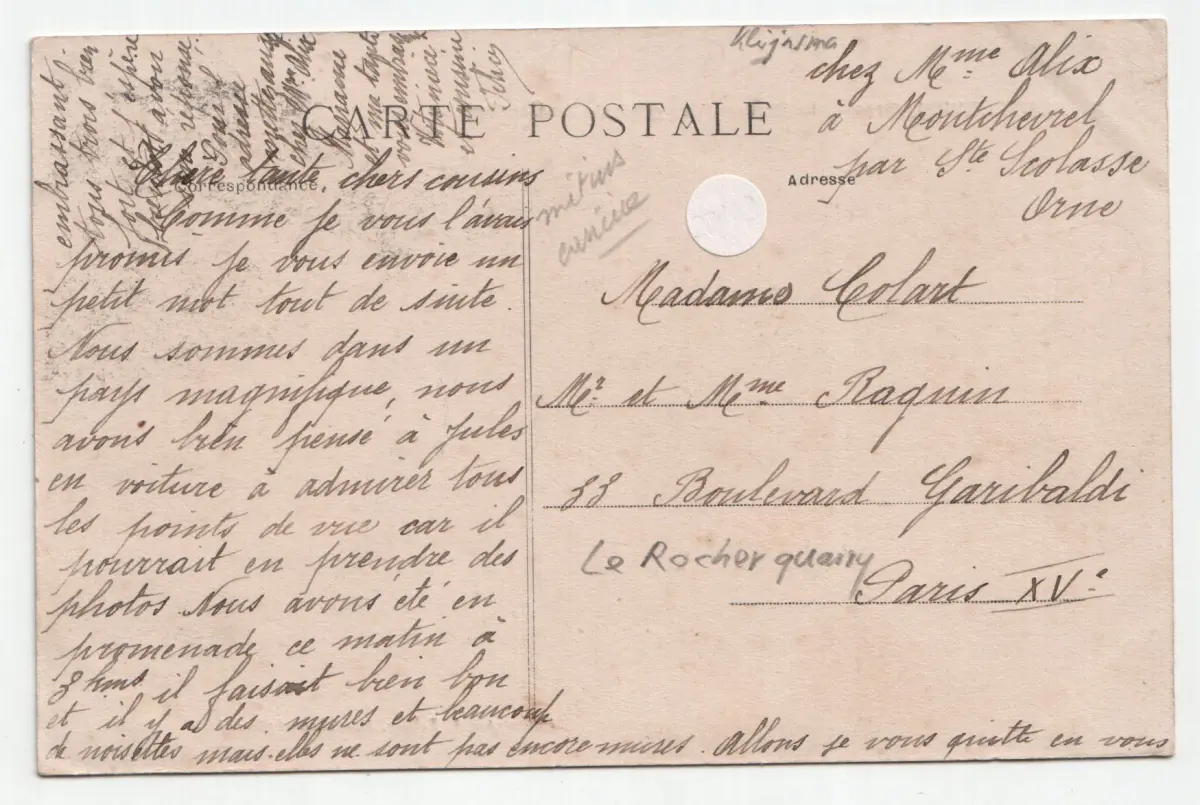 CARTE POSTALE
Correspondance
Adresse
chez Mme Alix
à Montchevrel
par Ste Scolasse
Orne
Chère tante, chers cousins
Comme je vous l'avais
promis je vous envoie un
petit mot tout de suite.
Nous sommes dans un
pays magnifique, nous
avons bien pensé à Jules
en voiture à admirer tous
les points de vue car il
pourrait en prendre des
photos Nous avons été en
promenade ce matin à
8 kms il faisait bien bon
et il y a des mures et beaucoup
de noisettes mais elles ne sont pas encore mures. Allons je vous quitte en vous
embrassant
tous trois bien
fort et espère
adresse
chez Mme Alix
Maman
et ma tante
cousine
Madame Colart
Mr et Mme Raquin
33 Boulevard Garibaldi
Paris XVe
Le Rocher quairy